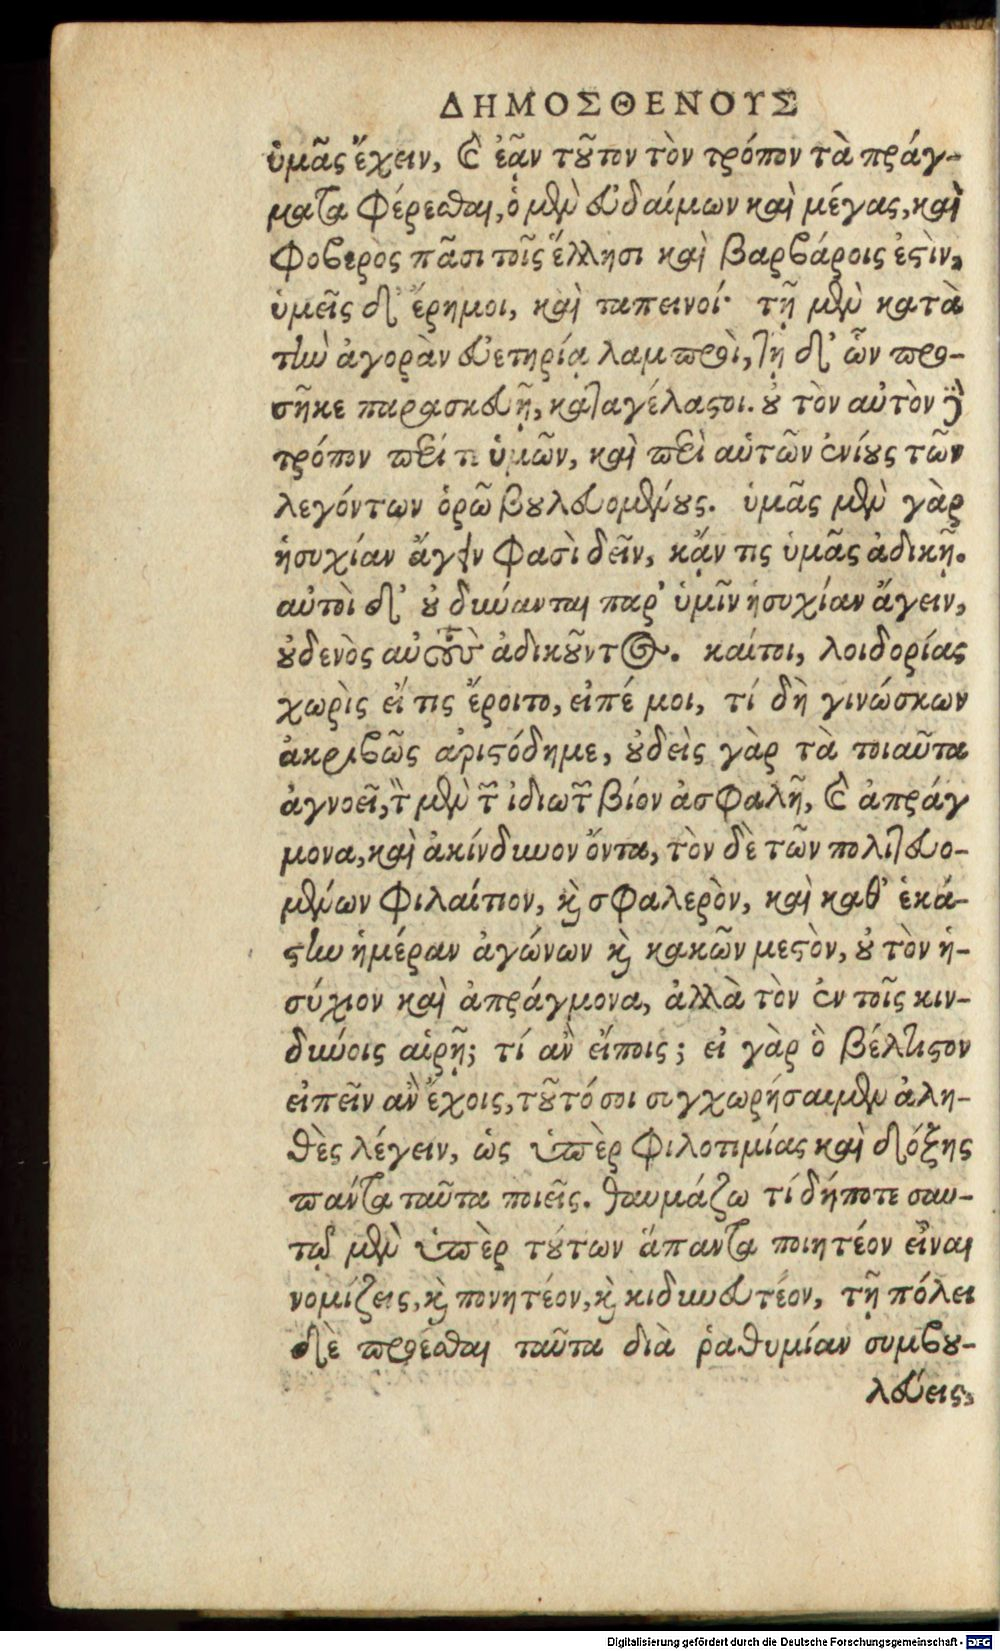 ΔΗΜΟΣΘΕΝΟΥΣ
ὑμᾶς ἔχειν, καὶ ἐᾶν τοῦτον τὸν τρόπον τὰ πράγ-
ματα φέρεσθαι, ὁ μὲν εὐδαίμων καὶ μέγας, καὶ
φοβερὸς πᾶσι τοῖς ἕλλησι καὶ βαρβάροις ἐστὶν,
ὑμεῖς δ' ἔρημοι, καὶ ταπεινοί· τῇ μὲν κατὰ
τὴν ἀγορὰν εὐετηρίᾳ λαμπροὶ, τῇ δ' ὧν προ-
σῆκε παρασκευῇ, καταγέλαστοι. οὐ τὸν αὐτὸν δὲ
τρόπον περί τε ὑμῶν, καὶ περὶ αὑτῶν ἐνίους τῶν
λεγόντων ὁρῶ βουλευομένους. ὑμᾶς μὲν γὰρ
ἡσυχίαν ἄγειν φασὶ δεῖν, κᾄν τις ὑμᾶς ἀδικῇ.
αὐτοὶ δ' οὐ δύνανται παρ' ὑμῖν ἡσυχίαν ἄγειν,
οὐδενὸς αὐτοὺς ἀδικοῦντος. καίτοι, λοιδορίας
χωρὶς εἴ τις ἔροιτο, εἰπέ μοι, τί δὴ γινώσκων
ἀκριβῶς ἀριστόδημε, οὐδεὶς γὰρ τὰ τοιαῦτα
ἀγνοεῖ, τὸν μὲν τῶν ἰδιωτῶν βίον ἀσφαλῆ, καὶ ἀπράγ
μονα, καὶ ἀκίνδυνον ὄντα, τὸν δὲ τῶν πολιτευο-
μένων φιλαίτιον, καὶ σφαλερὸν, καὶ καθ' ἑκά-
στην ἡμέραν ἀγώνων καὶ κακῶν μεστὸν, οὐ τὸν ἡ-
σύχιον καὶ ἀπράγμονα, ἀλλὰ τὸν ἐν τοῖς κιν-
δύνοις αἱρῇ; τί ἂν εἴποις; εἰ γὰρ ὃ βέλτιστον
εἰπεῖν ἂν ἔχοις, τοῦτό σοι συγχωρήσαιμεν ἀλη-
θὲς λέγειν, ὡς ὑπὲρ φιλοτιμίας καὶ δόξης
πάντα ταῦτα ποιεῖς. θαυμάζω τί δήποτε σαυ-
τῷ μὲν ὑπὲρ τούτων ἅπαντα ποιητέον εἶναι
νομίζεις, καὶ πονητέον, καὶ κιδυνευτέον, τῇ πόλει
δὲ προέσθαι ταῦτα διὰ ῥαθυμίαν συμβου-
λεύεις,
Digitalisierung gefördert durch die Deutsche Forschungsgemeinschaft - DFG